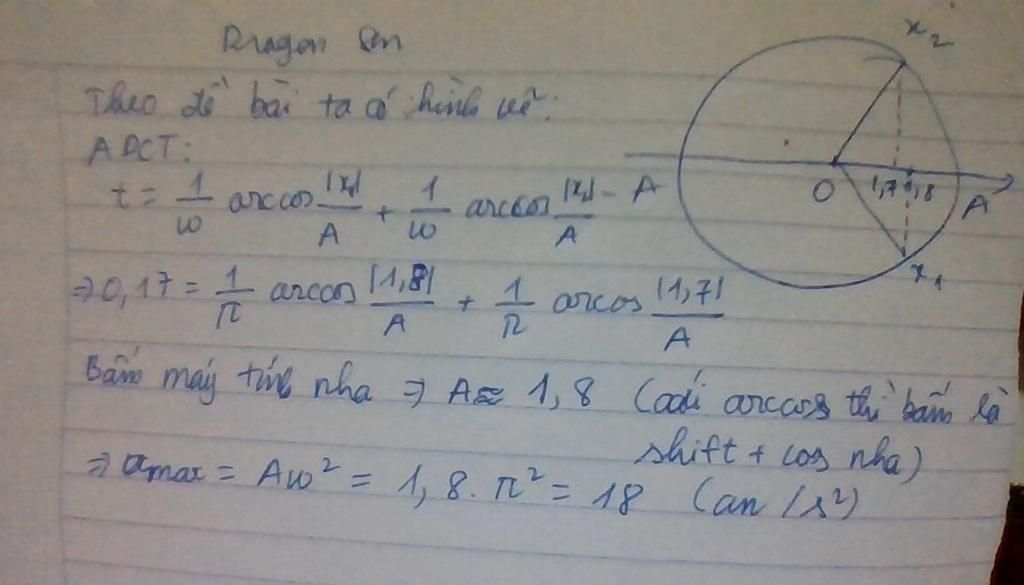 Dragon Sơn
Theo đề bài ta có hình vẽ:
ADCT:
t = 1/ω arccos |x₁|/A + 1/ω arccos |x₂|/A
⇒ 0,17 = 1/π arccos |1,8|/A + 1/π arccos |1,7|/A
Bấm máy tính nha ⇒ A ≈ 1,8 (cái arccos thì bấm là
shift + cos nha)
⇒ amax = Aω² = 1,8 . π² = 18 (cm/s²)
x₂
-A
O
1,7
1,8
A
x₁